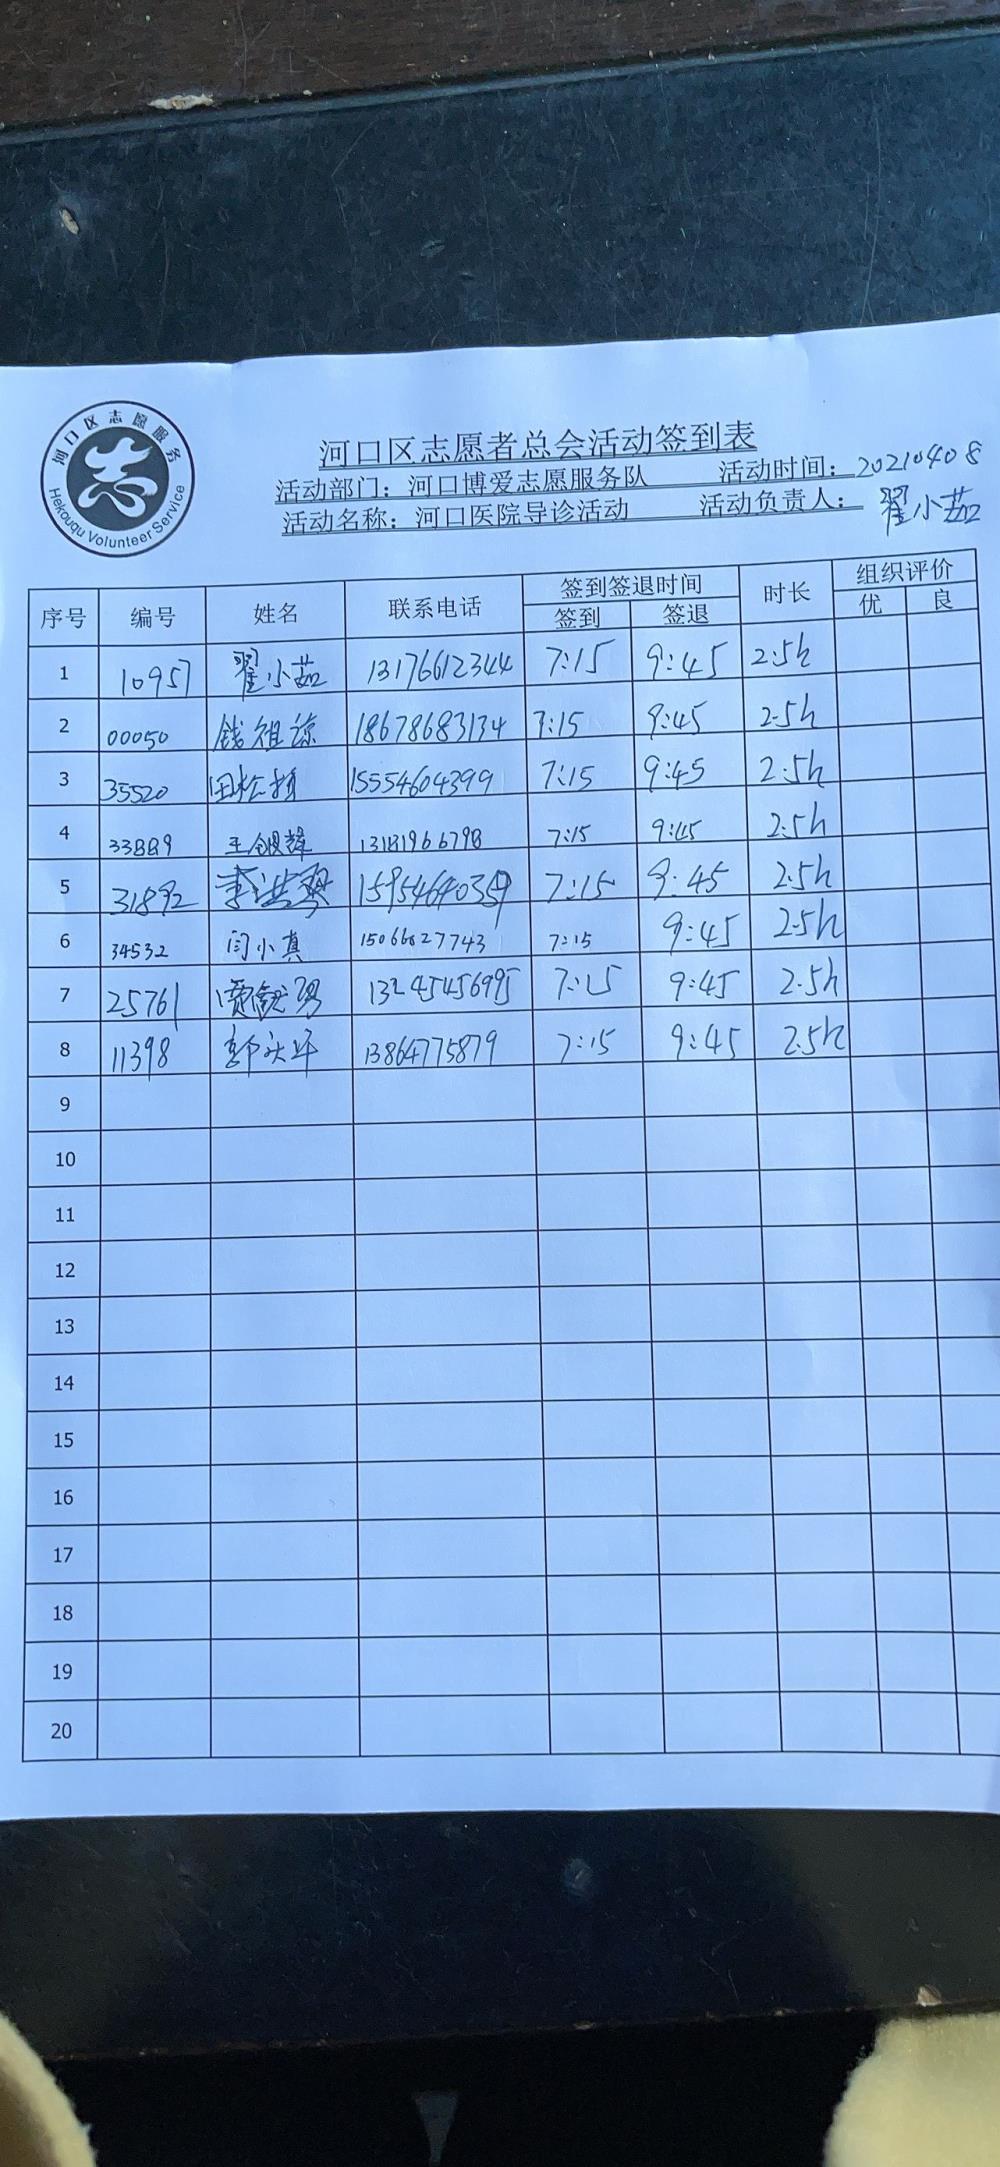 河口区志愿服务
Hekouqu Volunteer Service
河口区志愿者总会活动签到表
活动部门：河口博爱志愿服务队 活动时间：20210408
活动名称：河口医院导诊活动 活动负责人：翟小茹
序号 编号 姓名 联系电话 签到签退时间 时长 组织评价
签到 签退 优 良
1 10957 翟小茹 13176612344 7:15 9:45 2.5h
2 00050 钱祖谅 18678683134 7:15 9:45 2.5h
3 35520 田 15554604399 7:15 9:45 2.5h
4 33889 王 13181966798 7:15 9:45 2.5h
5 31892 李洪 15954640359 7:15 9:45 2.5h
6 34532 闫小真 15066627743 7:15 9:45 2.5h
7 25761 贾 13245456995 7:15 9:45 2.5h
8 11398 13864775879 7:15 9:45 2.5h
9
10
11
12
13
14
15
16
17
18
19
20